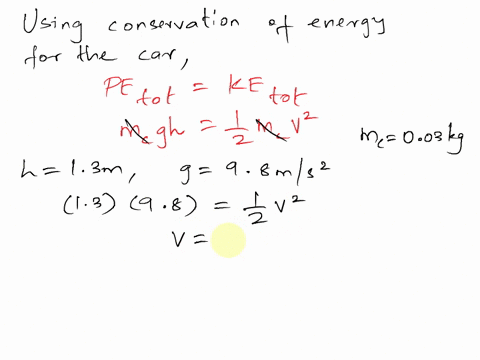 Using conservation of energy
for the car,
PE tot = KE tot
m_c gh = 1/2 m_c v²
m_c = 0.03 kg
h = 1.3m, g = 9.8 m/s²
(1.3) (9.8) = 1/2 v²
v =